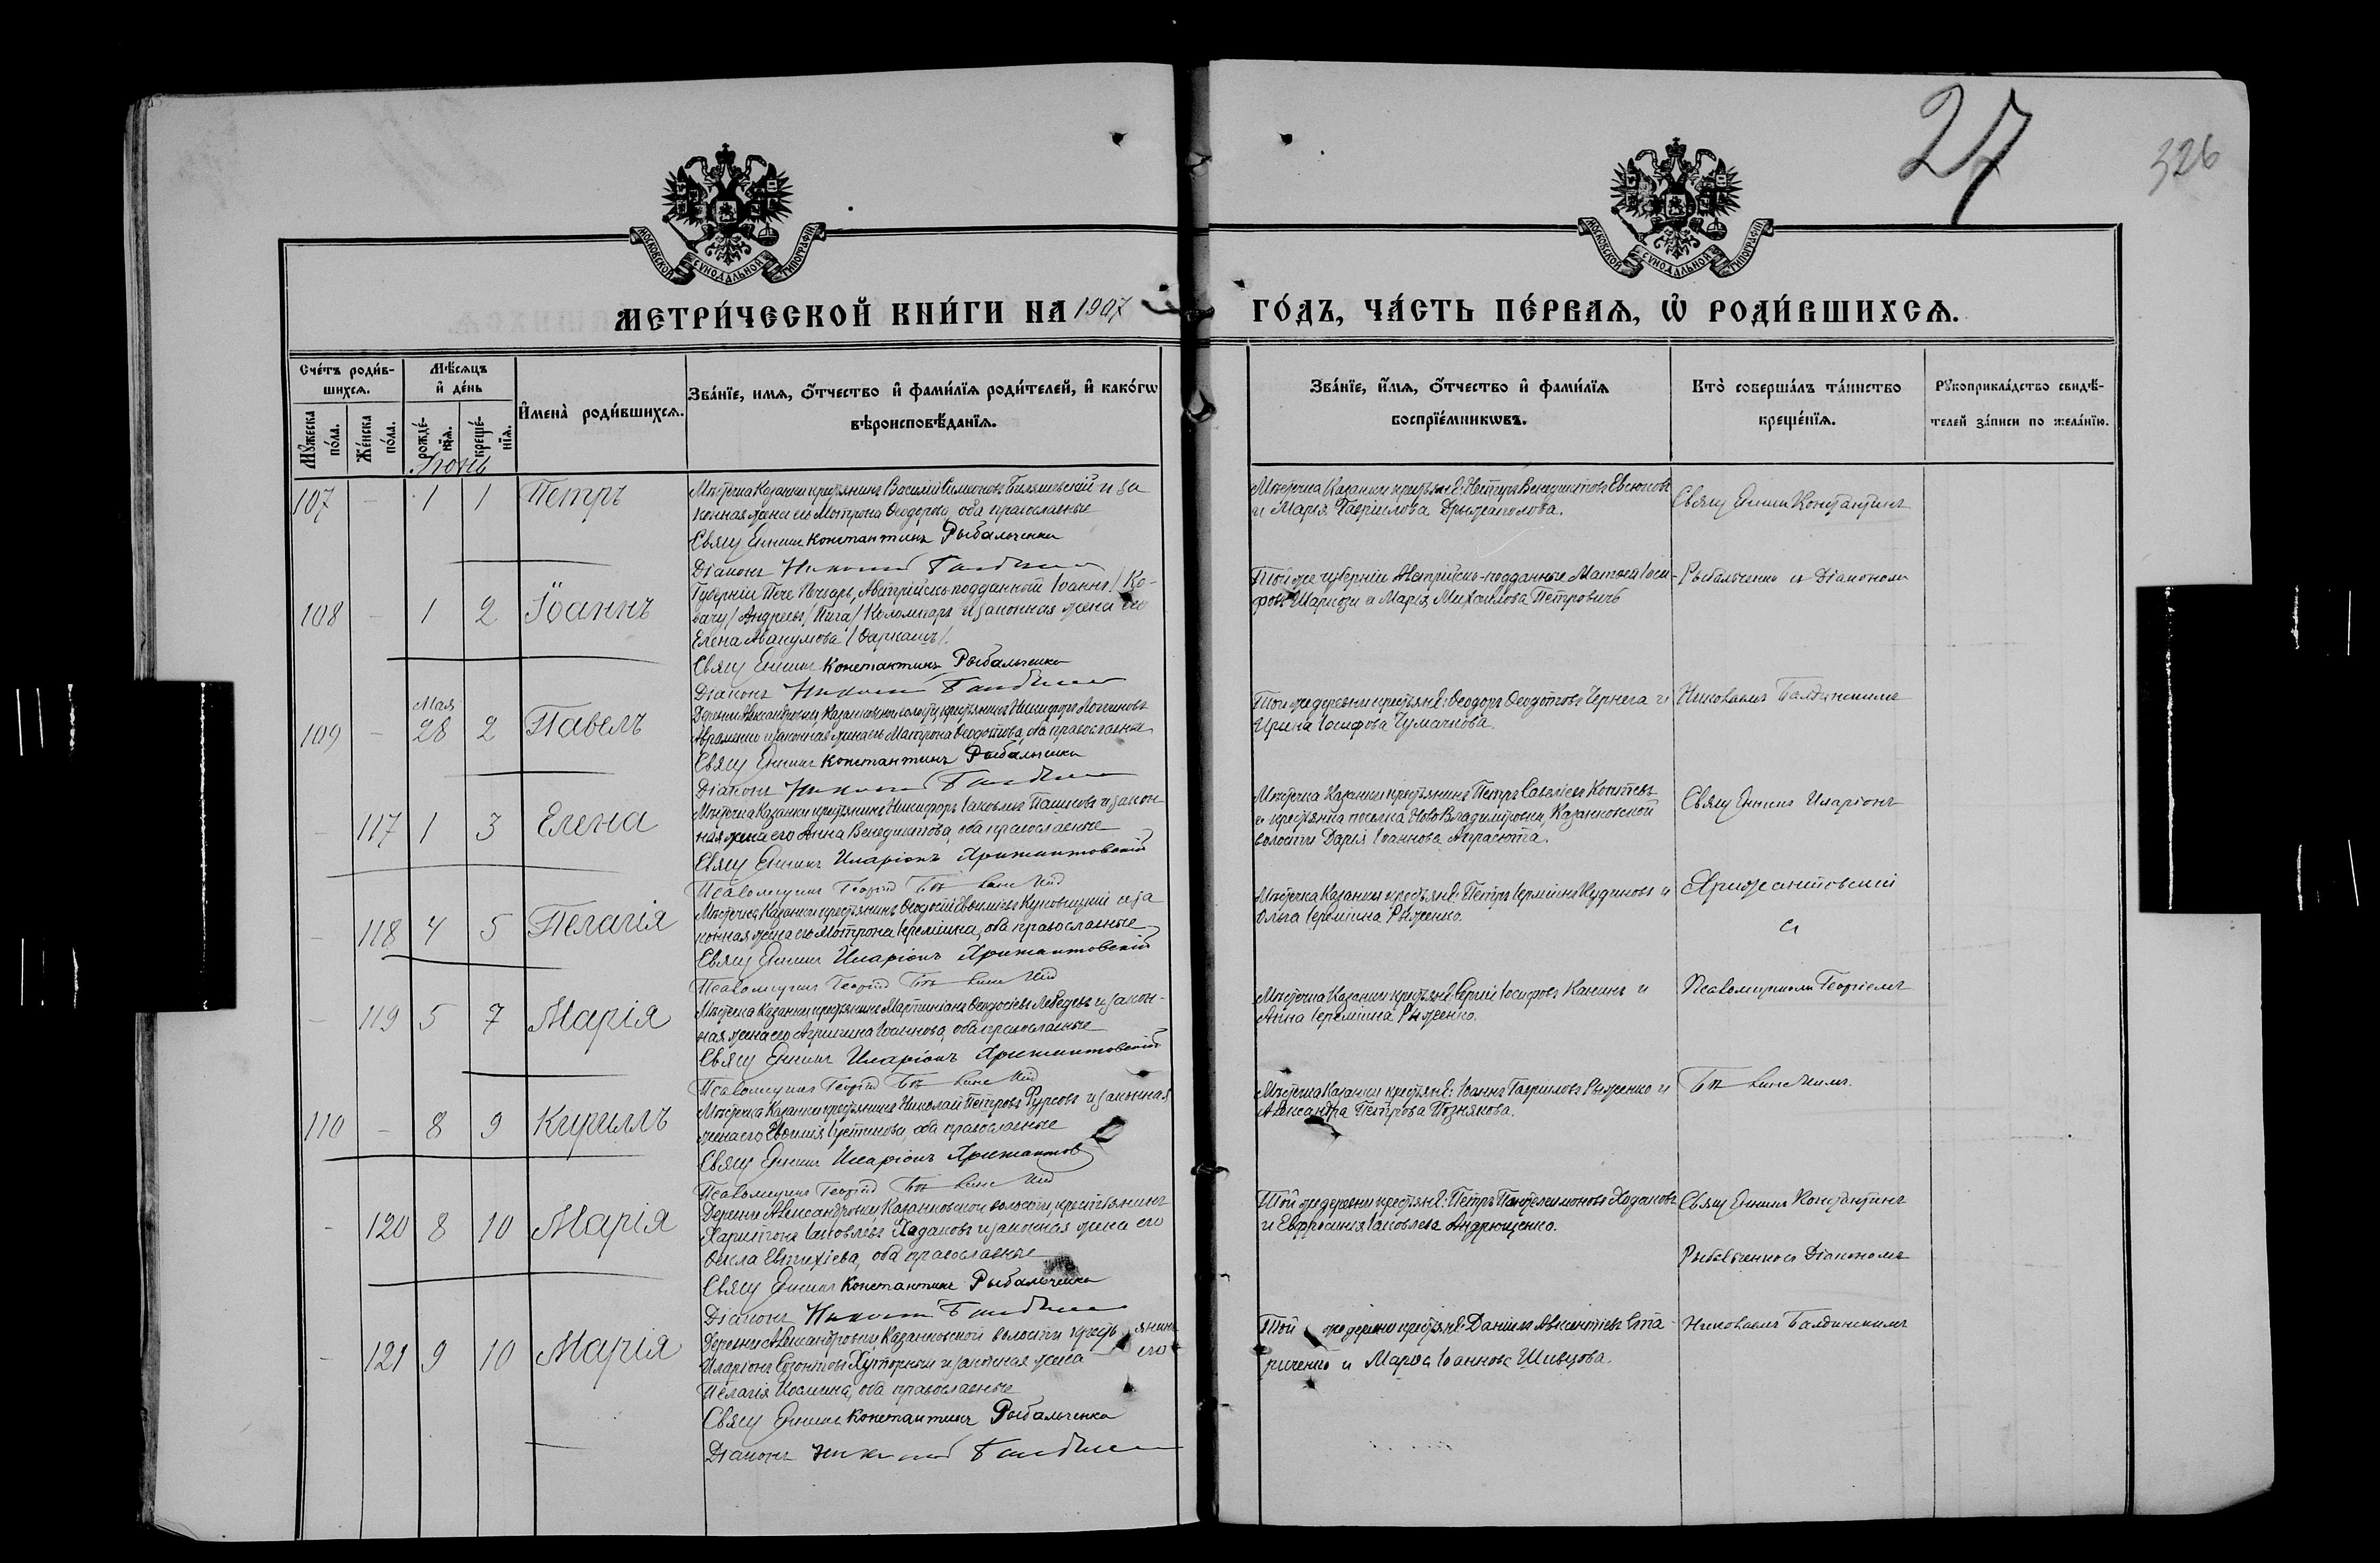 27
326
МОСКОВСКОЙ СУНОДАЛЬНОЙ ТИПОГРАФІИ
МОСКОВСКОЙ СУНОДАЛЬНОЙ ТИПОГРАФІИ
МЕТРИ́ЧЕСКОЙ КНИ́ГИ НА 1907 ГО́ДЪ, ЧА́СТЬ ПЕ́РВАѦ, Ѡ҆ РОДИ́ВШИХСѦ.
Сче́тъ роди́в-
шихсѧ.
Мꙋжеска по́ла.
Же́нска по́ла.
Мѣ́сѧцъ
и҆ де́нь
рожде́-
нїѧ.
креще́-
нїѧ.
И҆мена̀ роди́вшихсѧ.
Зва́нїе, имѧ, ѻ҆́тчество и҆ фами́лїѧ роди́телей, и҆ како́гѡ
вѣроисповѣ́данїѧ.
Зва́нїе, и҆́мѧ, ѻ҆́тчество и҆ фами́лїѧ
воспрїе́мникѡвъ.
Кто̀ соверша́лъ та́инство
креще́нїѧ.
Рꙋкоприкла́дство свидѣ́-
телей за́писи по жела́нїю.
Іюнь
107 - 1 1 Петръ
Мѣстечка Казанки крестьянинъ Василій Симеоновъ и за
конная жена его Мотрона Ѳеодорова, оба православные
Свящ Константинъ Рыбальченко
Діаконъ Николай
Мѣстечка Казанки крестьяне: Петръ Венедиктовъ Евсюковъ
и Марія Гавріилова
Свящ Константинъ
108 - 1 2 Іоаннъ
Губерніи Австрійско-подданный Іоаннъ / Ко-
вачу / Андреевъ / Пига / Коломпаръ и законная жена его
Елена Авакумова
Свящ Константинъ Рыбальченко
Діаконъ Николай
Той же губерніи Австрійско-подданные Матвей Іоси-
фовъ и Марія Михаилова Петровичъ
Рыбальченко и Діакономъ
Мая
109 - 28 2 Павелъ
Деревни Александровки, Казанковской волости, крестьянинъ Никифоръ Логгиновъ
Авраменко и законная жена его Матрона Ѳеодотова, оба православные
Свящ Константинъ Рыбальченко
Діаконъ Николай
Той же деревни крестьяне: Ѳеодоръ Ѳеодотовъ Чернега и
Ирина Іосифова Чумачкова.
Николаемъ Балдинскимъ
- 117 1 3 Елена
Мѣстечка Казанки крестьянинъ Никифоръ Іаковлевъ Пашковъ и закон
ная жена его Анна Венедиктова, оба православные
Свящ Иларіонъ Хрисантовскій
Псаломщикъ Георгій
Мѣстечка Казанки крестьянинъ Петръ Савеліевъ
и крестьянка поселка Ново Владимировки, Казанковской
волости Дарія Іоаннова
Свящ Иларіонъ
- 118 4 5 Пелагія
Мѣстечка Казанки крестьянинъ Ѳеодосій Евѳиміевъ и за
конная жена его Мотрона Іереміина, оба православные
Свящ Иларіонъ Хрисантовскій
Псаломщикъ Георгій
Мѣстечка Казанки крестьяне: Петръ Кудиновъ и
Ольга Іереміина Рыженко.
Хрисантовскій
и
- 119 5 7 Марія
Мѣстечка Казанки крестьянинъ Мартиніанъ Ѳеодосіевъ Лебедевъ и закон-
ная жена его Агрипина Іоаннова, оба православные
Свящ Иларіонъ Хрисантовскій
Псаломщикъ Георгій
Мѣстечка Казанки крестьяне: Сергій Іосифовъ Канинъ и
Анна Іереміина Рыженко.
Псаломщикомъ Георгіемъ
110 - 8 9 Кириллъ
Мѣстечка Казанки крестьянинъ Николай Петровъ Фурсовъ и законная
жена его Евѳимія Іустинова, оба православные
Свящ Иларіонъ
Псаломщикъ Георгій
Мѣстечка Казанки крестьяне: Іоаннъ Гавриловъ Рыженко и
Александра Петрова Познякова.
- 120 8 10 Марія
Деревни Александровки, Казанковской волости, крестьянинъ
Харитонъ Іаковлевъ Ходаковъ и законная жена его
Ѳекла Евтихіева, оба православные
Свящ Константинъ Рыбальченко
Діаконъ Николай
Той же деревни крестьяне: Петръ Пантелеимоновъ Ходаковъ
и Евфросинія Іаковлева Андрющенко.
Свящ Константинъ
Рыбальченко и Діакономъ
- 121 9 10 Марія
Деревни Александровки, Казанковской волости крестьянинъ
Иларіонъ Созонтовъ Хуторный и законная жена его
Пелагія Косьмина, оба православные
Свящ Константинъ Рыбальченко
Діаконъ Николай
Той же деревни крестьяне: Даніилъ Авксентіевъ Ста-
риченко и Марѳа Іоаннова Шевцова.
Николаемъ Балдинскимъ